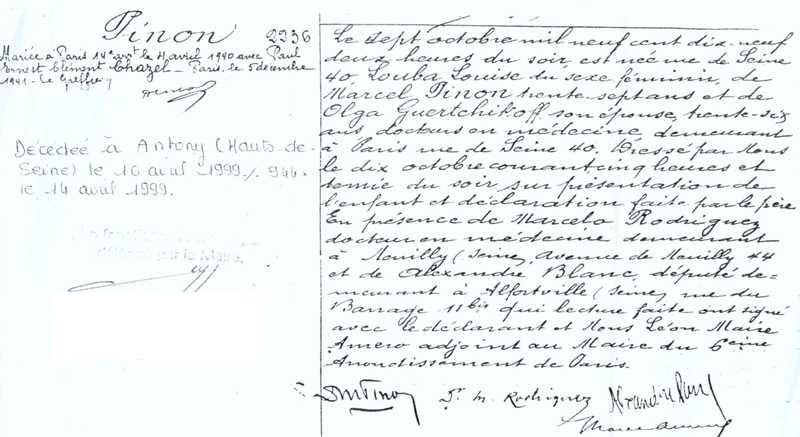 Pinon 2236
Mariée à Paris 14e arrt le 4 avril 1940 avec Paul
Ernest Clément Chazel - Paris, le 5 décembre
1941 - Le Greffier
Décédée à Antony (Hauts-de-
Seine) le 10 avril 1999 ./. 944.
le 14 avril 1999.
Le sept octobre mil neuf cent dix-neuf
deux heures du soir, est née rue de Seine
40, Louba Louise du sexe féminin, de
Marcel Pinon trente-sept ans et de
Olga Guertchikoff son épouse, trente-six
ans, docteurs en médecine, demeurant
à Paris rue de Seine 40. Dressé par Nous
le dix octobre courant cinq heures et
demie du soir, sur présentation de
l'enfant et déclaration faite par le père
En présence de Marcelo Rodriguez
docteur en médecine demeurant
à Neuilly (Seine) Avenue de Neuilly 44
et de Alexandre Blanc, député de-
meurant à Alfortville (Seine) rue du
Barrage 11 bis qui lecture faite ont signé
avec le déclarant et Nous Léon Marie
Amero adjoint au Maire du 6eme
Arrondissement de Paris.
Dr M. Rodriguez